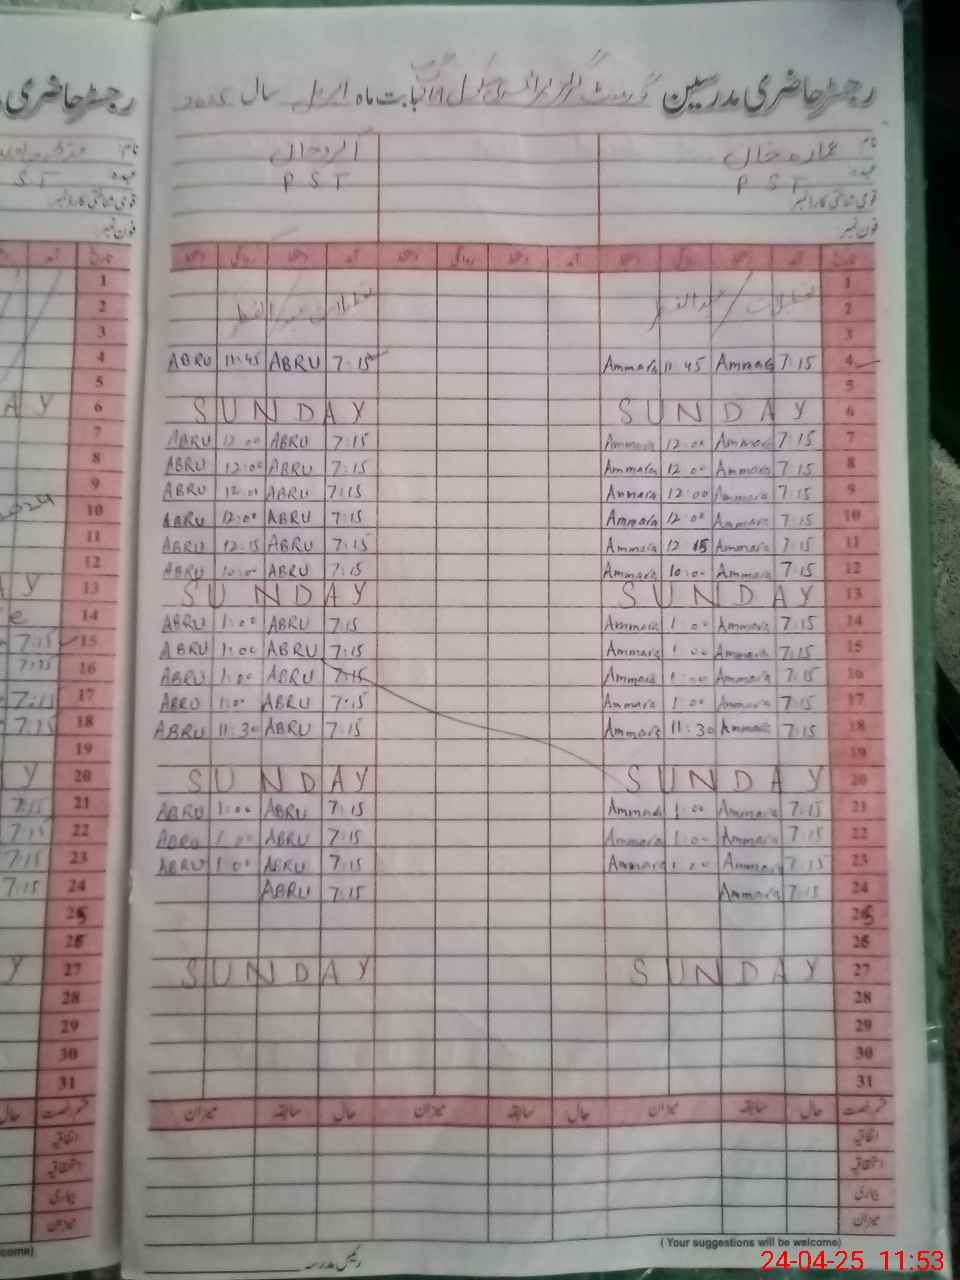 رجسٹر حاضری مدرسین گورنمنٹ گرلز پرائمری سکول بابت ماہ اپریل سال 2025
نام عمارہ جان
عہدہ PST PST
قومی شناختی کارڈ نمبر
فون نمبر
تاریخ آمد دستخط روانگی دستخط آمد دستخط روانگی دستخط آمد دستخط روانگی دستخط
1
2 تعطیلات عید الفطر تعطیلات عید الفطر
3
ABRU 11:45 ABRU 7:15 Ammara 11 45 Ammara 7:15 4
5
SUNDAY SUNDAY 6
ABRU 12:00 ABRU 7:15 Ammara 12:00 Ammara 7:15 7
ABRU 12:00 ABRU 7:15 Ammara 12 00 Ammara 7:15 8
ABRU 12:00 ABRU 7:15 Ammara 12:00 Ammara 7:15 9
ABRU 12:00 ABRU 7:15 Ammara 12:00 Ammara 7:15 10
ABRU 12:15 ABRU 7:15 Ammara 12 15 Ammara 7:15 11
ABRU 10:00 ABRU 7:15 Ammara 10:00 Ammara 7:15 12
SUNDAY SUNDAY 13
ABRU 1:00 ABRU 7:15 Ammara 1:00 Ammara 7:15 14
ABRU 1:00 ABRU 7:15 Ammara 1:00 Ammara 7:15 15
ABRU 1:00 ABRU 7:15 Ammara 1:00 Ammara 7:15 16
ABRU 1:00 ABRU 7:15 Ammara 1:00 Ammara 7:15 17
ABRU 11:30 ABRU 7:15 Ammara 11:30 Ammara 7:15 18
19
SUNDAY SUNDAY 20
ABRU 1:00 ABRU 7:15 Ammara 1:00 Ammara 7:15 21
ABRU 1:00 ABRU 7:15 Ammara 1:00 Ammara 7:15 22
ABRU 1:00 ABRU 7:15 Ammara 1:00 Ammara 7:15 23
ABRU 7:15 Ammara 7:15 24
25
26
SUNDAY SUNDAY 27
28
29
30
31
قسم رخصت حال سابقہ میزان حال سابقہ میزان حال سابقہ میزان
اتفاقیہ
استحقاقیہ
بیماری
میزان
رئیس مدرسہ
(Your suggestions will be welcome)
24-04-25 11:53